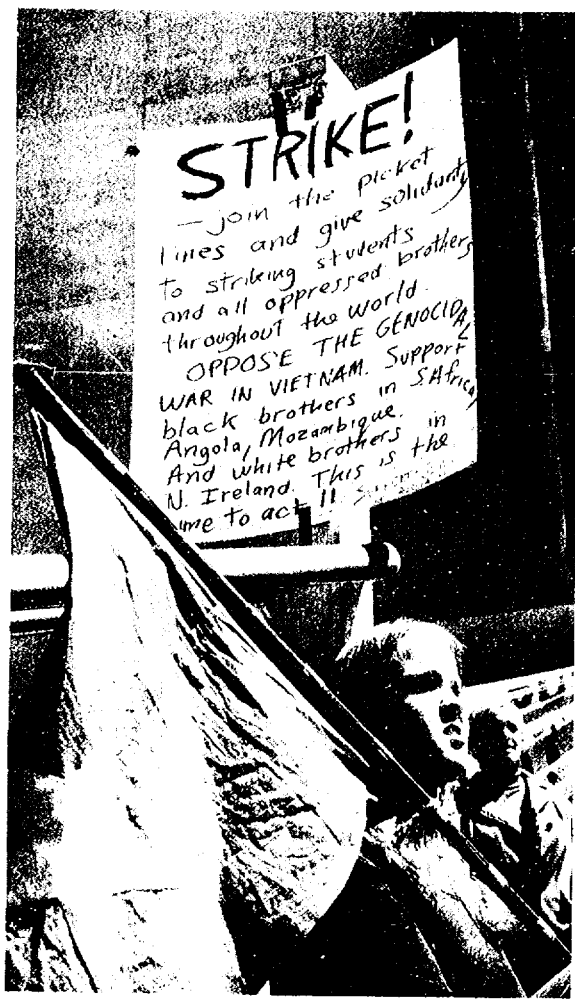 STRIKE!
— join the picket
lines and give solidarity
to striking students
and all oppressed brothers
throughout the world.
OPPOSE THE GENOCIDAL
WAR IN VIETNAM. Support
black brothers in S.Africa,
Angola, Mozambique.
And white brothers in
N. Ireland. This is the
ime to act !!